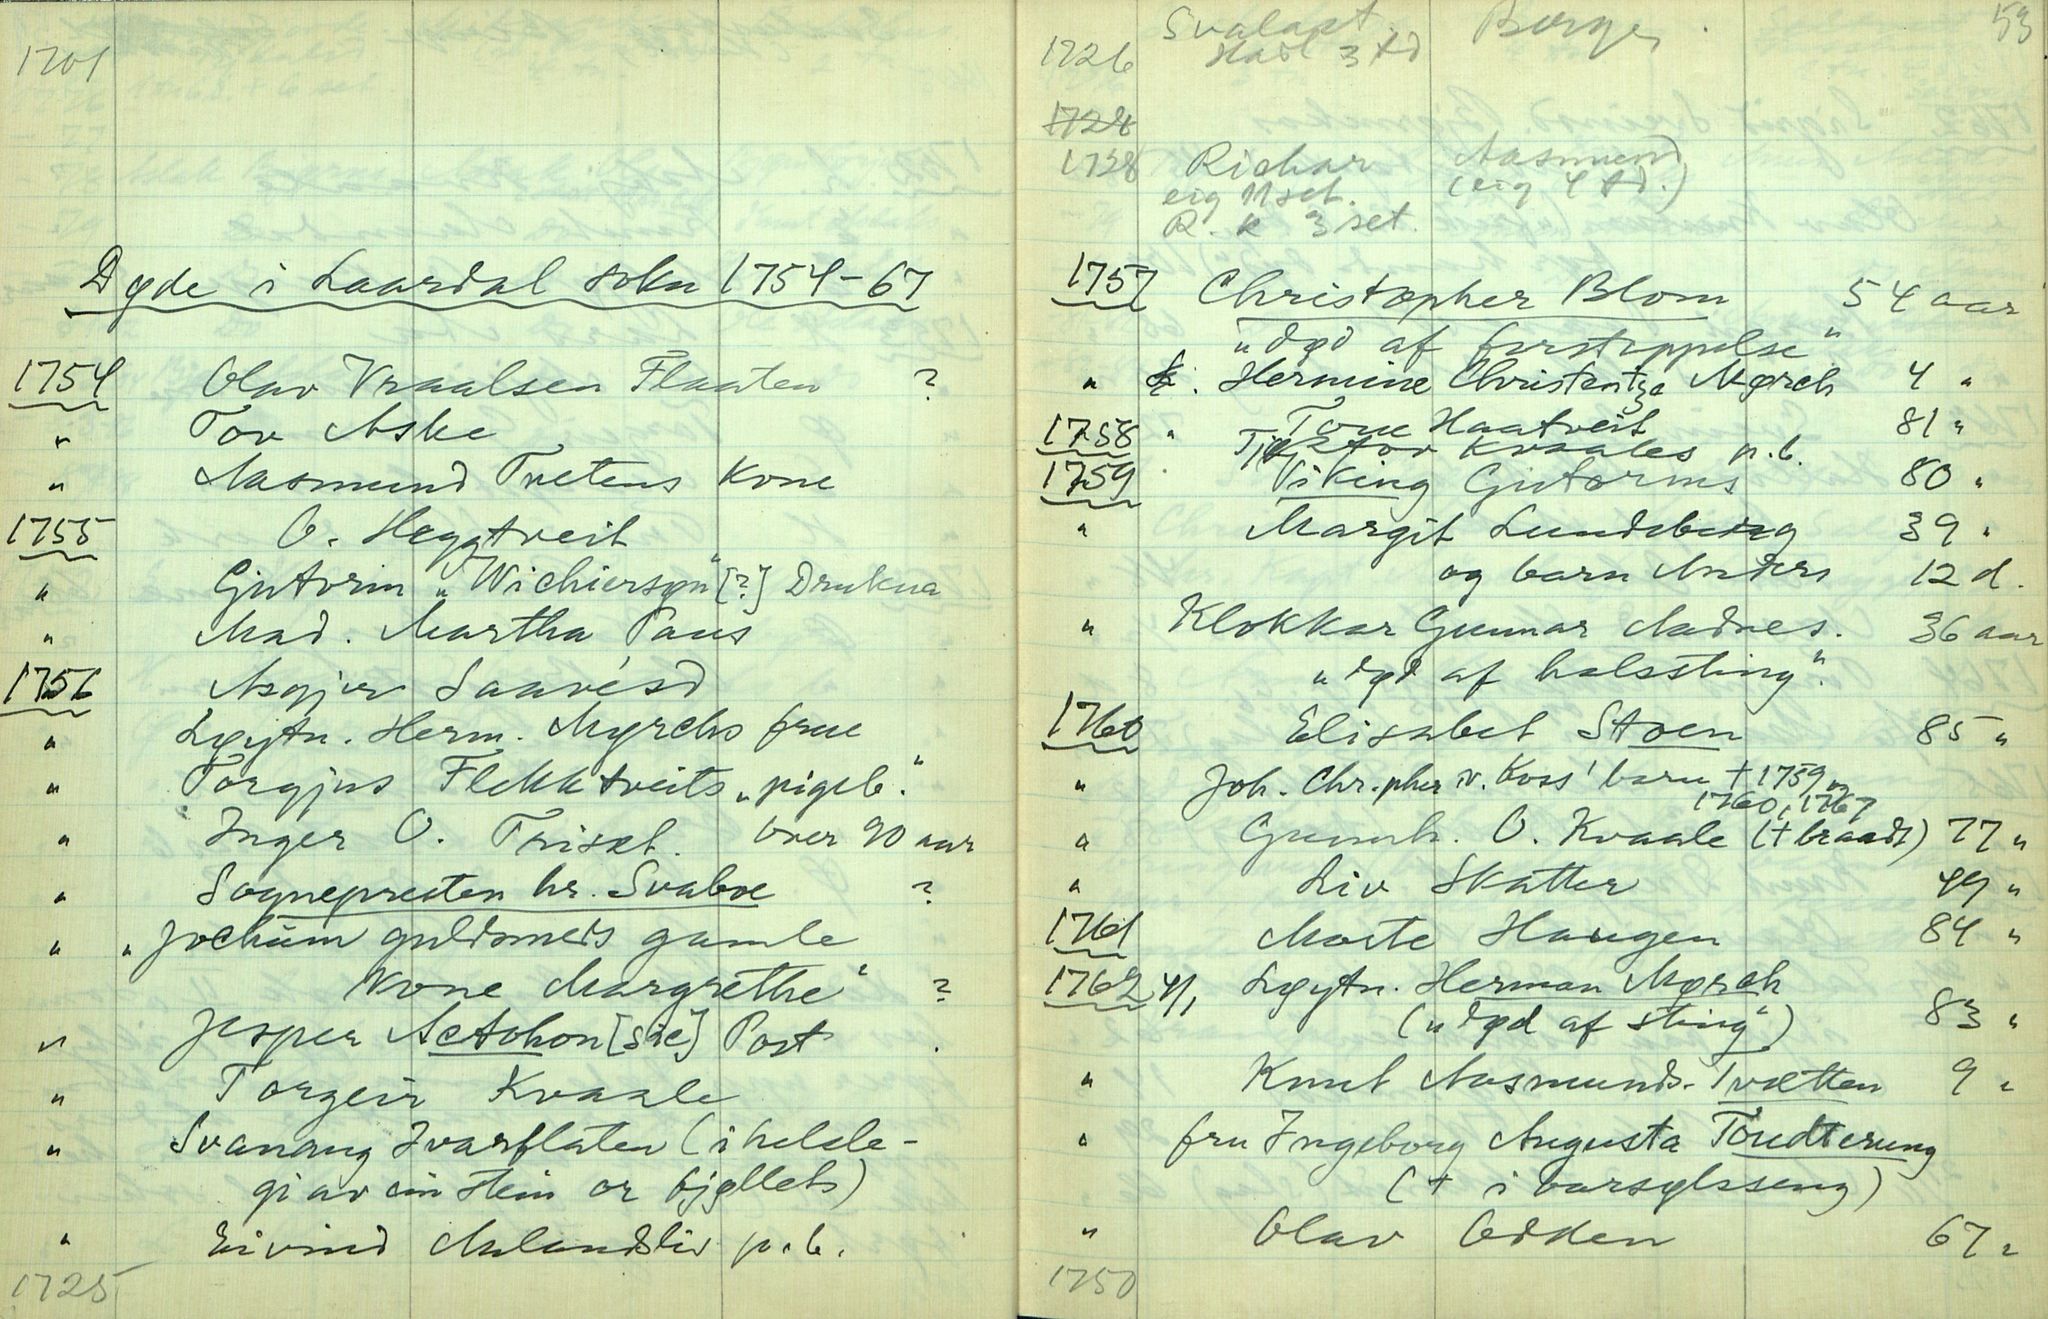 1701
Døde i Laardal sokn 1754-67
1754 Olav Vraalsen Flaaten ?
" Tov Aske
" Aasmund Tvetens Kone
1755 O. Heggtveit
" Gutorm „Wichiersøn" [?] Drukna
" Mad. Martha Paus
1756
" Løytn. Herm. Myrchs frue
" Torgjus Flekktveits „pigeb."
" Inger O. Triset. over 90 aar
" Sognepresten hr. Svaboe ?
" „Jochum guldsmeds gamle
Kone Margrethe" ?
" Jesper Actohon [sic] Post
" Torgeir Kvaale
" Svanaug Ivarflaten (ihelsle-
gi av ein stein or fjøllets)
" Eivind Aalandslid p.b.
1725
53
1726 Svalast Borge
Hadl 3 td
1728
1728 Richar Aasmund
eig 11 set. (eig 4 td.)
R. k 3 set.
1757 Christopher Blom 54 aar
„død af forstoppelse"
" Hermine Christentze Mørch 4 "
" Tone Haatveit 81 "
1758 Kvaales p.b.
1759 Viking Gutorms 80 "
" Margit Lundeberg 39 "
og barn Anders 12 d.
" Klokkar Gunnar Aadnes. 36 aar
„død af halssting".
1760 Elisabet Stoen 85 "
" Joh. Chr.pher v. Koss' barn + 1759 og
1760, 1767
" Gunnh. O. Kvaale (+ braadt) 77 "
" Liv Skatter 49 "
1761 Marte Haugen 84 "
1762 4/1 Løytn. Herman Mørch
(„død af sting") 83 "
" Knut Aasmunds. Tvætten 9 "
" fru Ingeborg Augusta Toudterung
(+ i barsylsseng)
" Olav Odden 67 "
1750